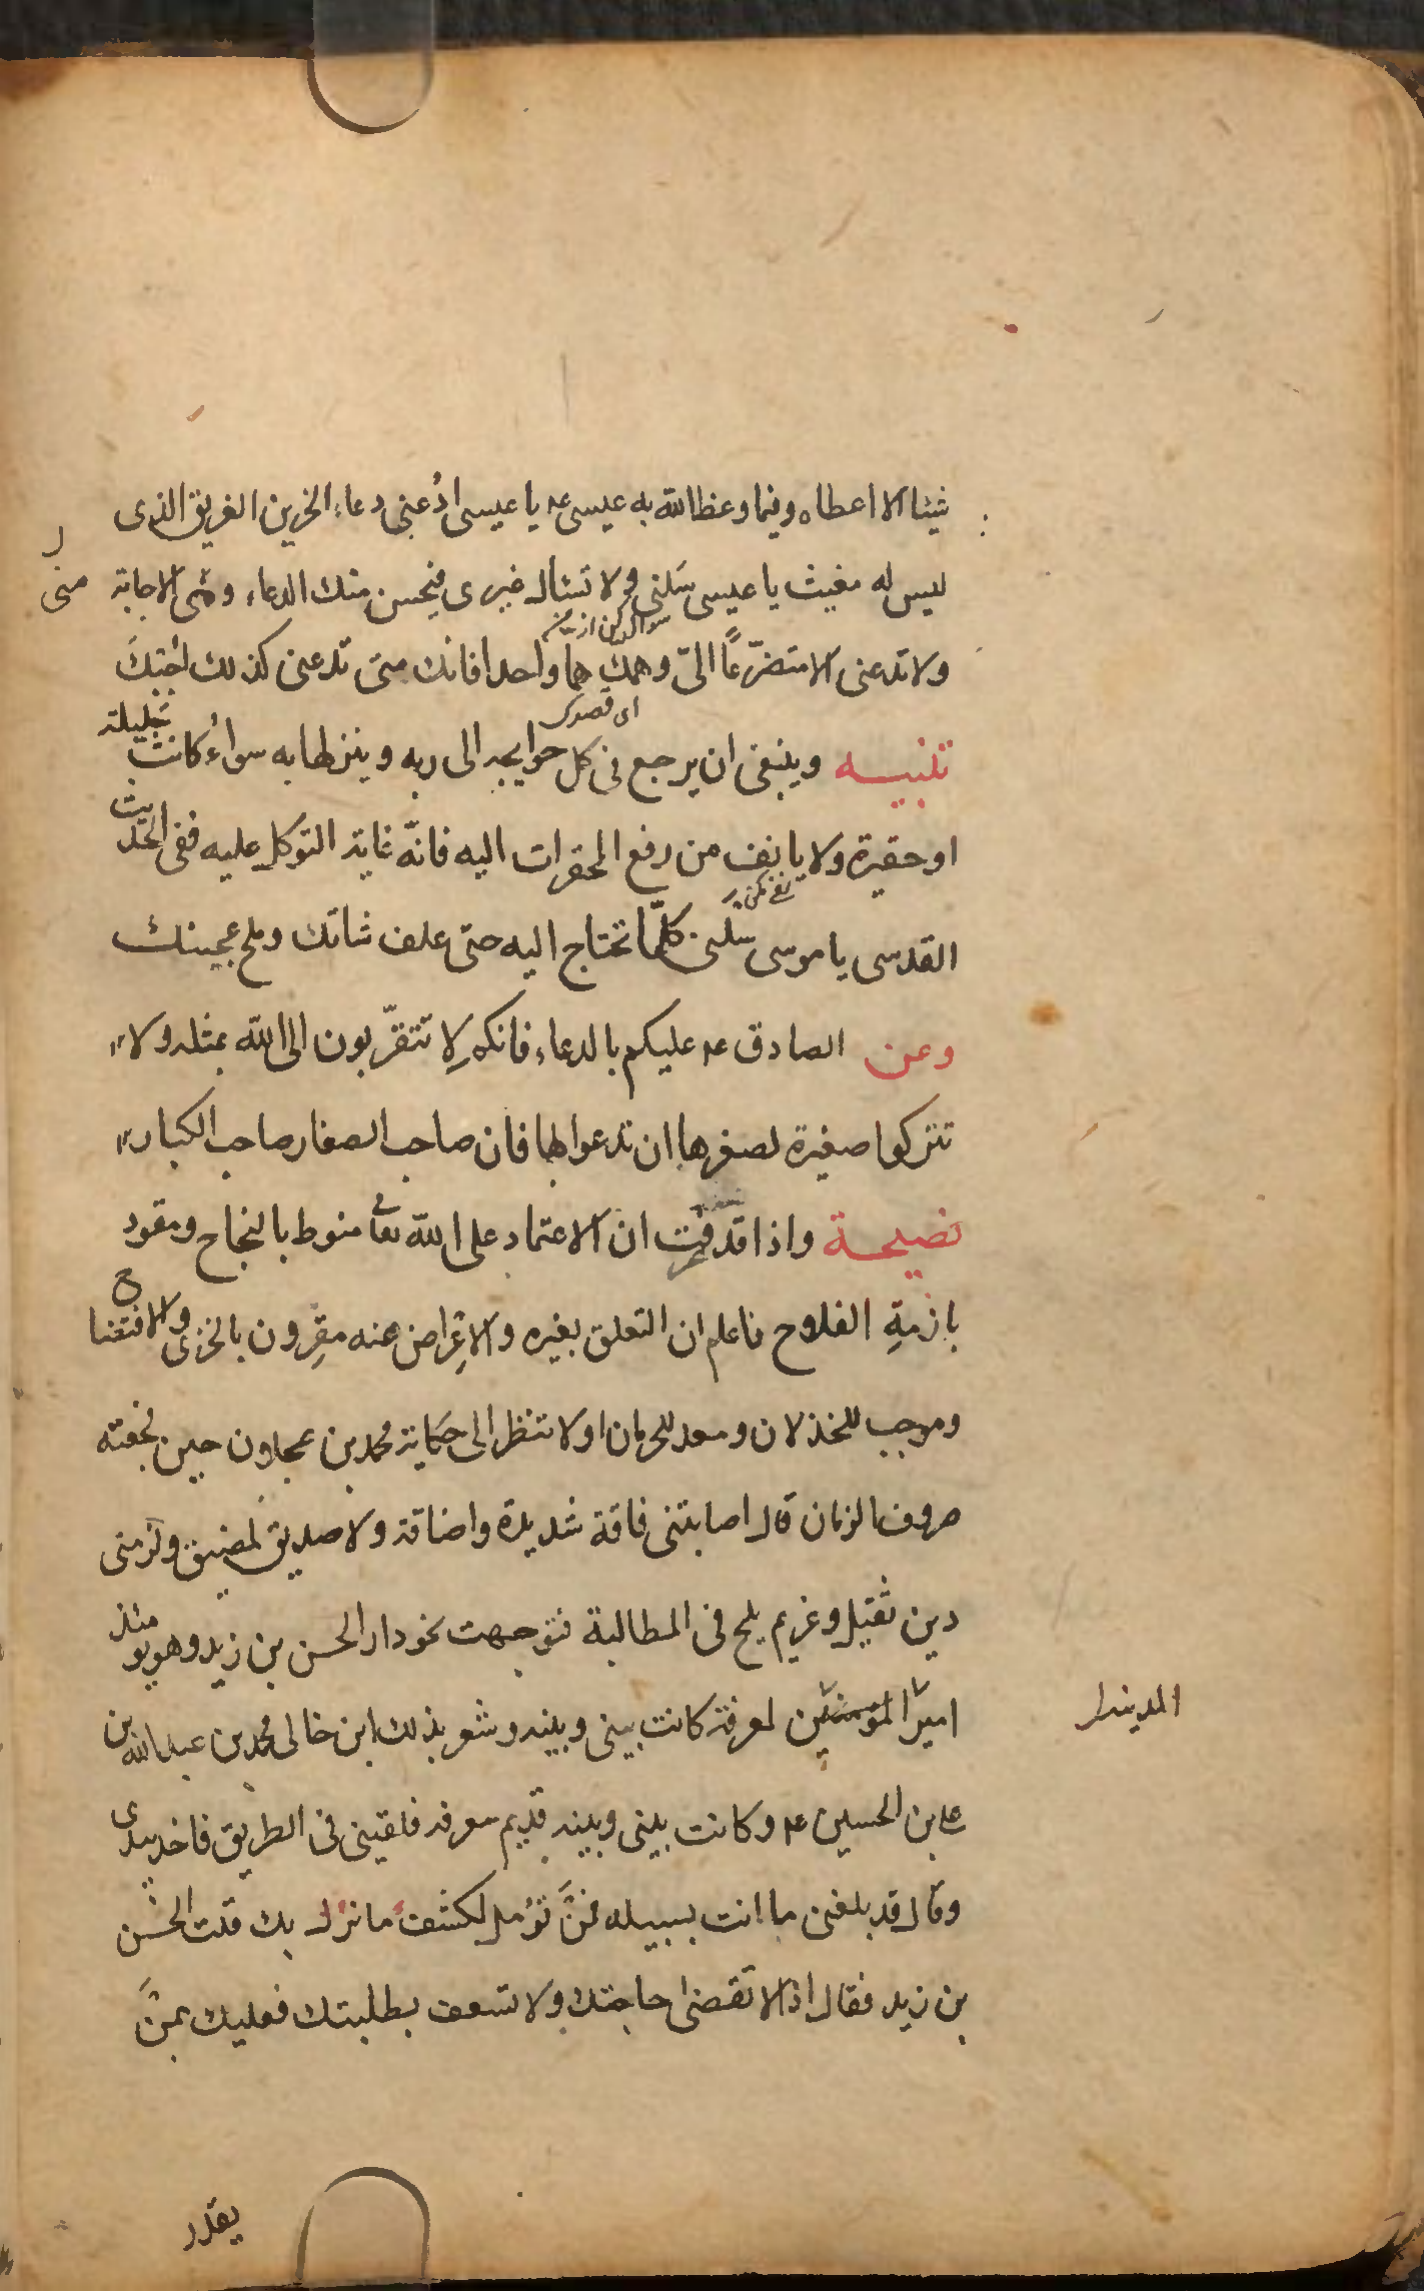 شيئا الا اعطاه وفيما وعظ الله به عيسى عه يا عيسى ادُعنى دعاء الحزين الغريق الذى
ليس له مغيث يا عيسى سَلنى ولا تسئال غيرى فيحسن منك الدعاء ومنى الاجابة
منى
ولا تدعنى الا متضرّعاً الىّ وهمك هما واحدا فانك متى تدعنى كذلك اجبتكَ
اى قصدك
تنبيه وينبغى ان يرجع فى كل حوايجه الى ربه وينزلها به سواءُ كانت جليلة
او حقيرة ولا يانف من رفع المحقرات اليه فانّه غاية التوكل عليه ففى الحديث
القدسى يا موسى سلنى كلّما تحتاج اليه حتى علف شاتك وملح عجينك
وعن الصادق عه عليكم بالدعاء فانكم لا تتقرّبون الى الله بمثله ولا
تتركوا صغيرة لصغرها ان تدعوا بها فان صاحب الصغار صاحب الكبار
نصيحة واذا قد عرفت ان الاعتماد على الله تعا منوط بالنجاح ومقود
بازمةِ الفلاح فاعلم ان التعلق بغيره والاعراض عنه مقرون بالخزى والافتضاح
وموجب للخذلان ومعد للحرمان اولا تنظر الى حكاية محمد بن عجلان حين لحقته
صروف الزمان قال اصابتنى فاقة شديدة واضاقة ولا صديق لمضيق ولزمنى
دين ثقيل وغريم يلح فى المطالبة فتوجهت نحو دار الحسن بن زيد وهو يومئذ
امير المؤمنين لمعرفة كانت بينى وبينه وشعر بذلك ابن خالى محمد بن عبد الله بن
المدينة
على بن الحسين عه وكانت بينى وبينه قديم معرفه فلقينى فى الطريق فاخذ بيدى
وقال قد بلغنى ما انت بسبيله فمنَ تؤمل لكشف ما نزل بك قلت الحسن
بن زيد فقال اذا لا تقضى حاجتك ولا تسعف بطلبتك فعليك بمنَ
يقدر